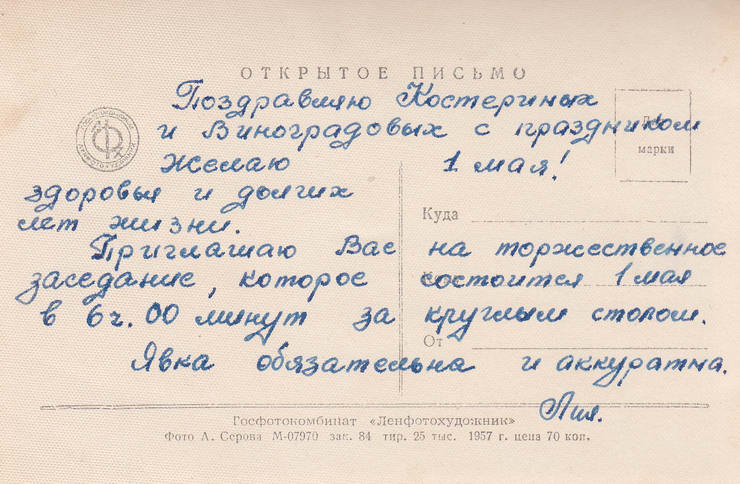 ОТКРЫТОЕ ПИСЬМО
Поздравляю Костериных
и Виноградовых с праздником
желаю 1 мая!
здоровья и долгих
лет жизни.
Приглашаю Вас на торжественное
заседание, которое состоится 1 мая
в 6ч. 00 минут за круглым столом.
Явка обязательна и аккуратна.
Лия.
марки
Куда
От
Госфотокомбинат «Ленфотохудожник»
Фото А. Серова М-07970 зак. 84 тир. 25 тыс. 1957 г. цена 70 коп.